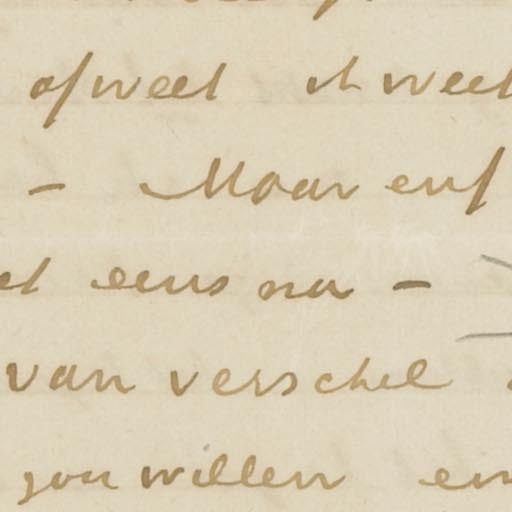 of weet ik weet
- Maar enf
et eens na -
van verschil
zou willen en